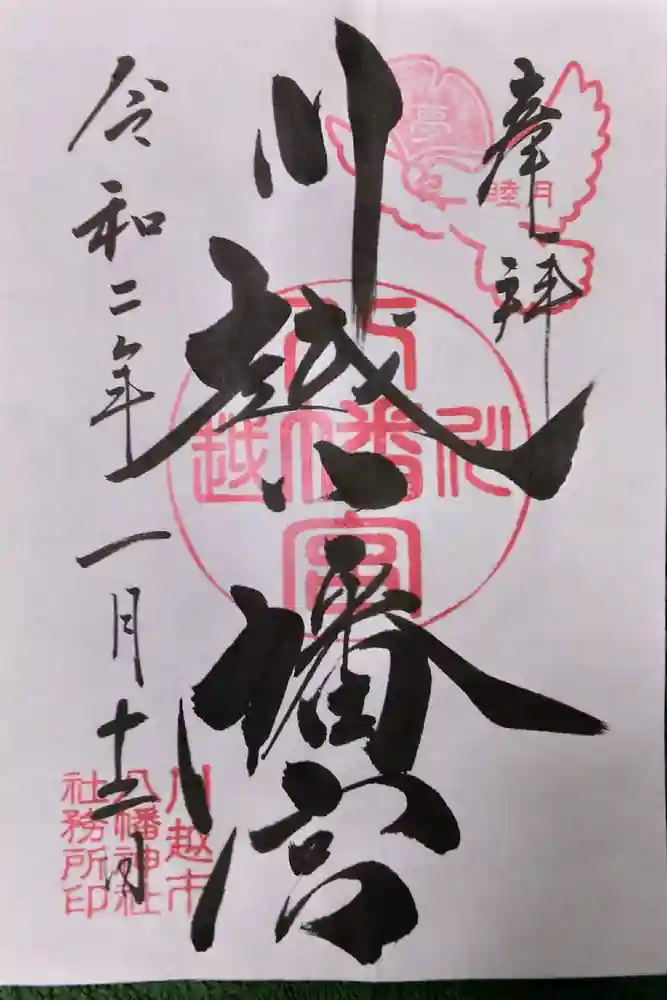 奉拝
夢
睦月
川越八幡宮
八
川幡越
宮
令和二年一月十二日
川越市
八幡神社
社務所印